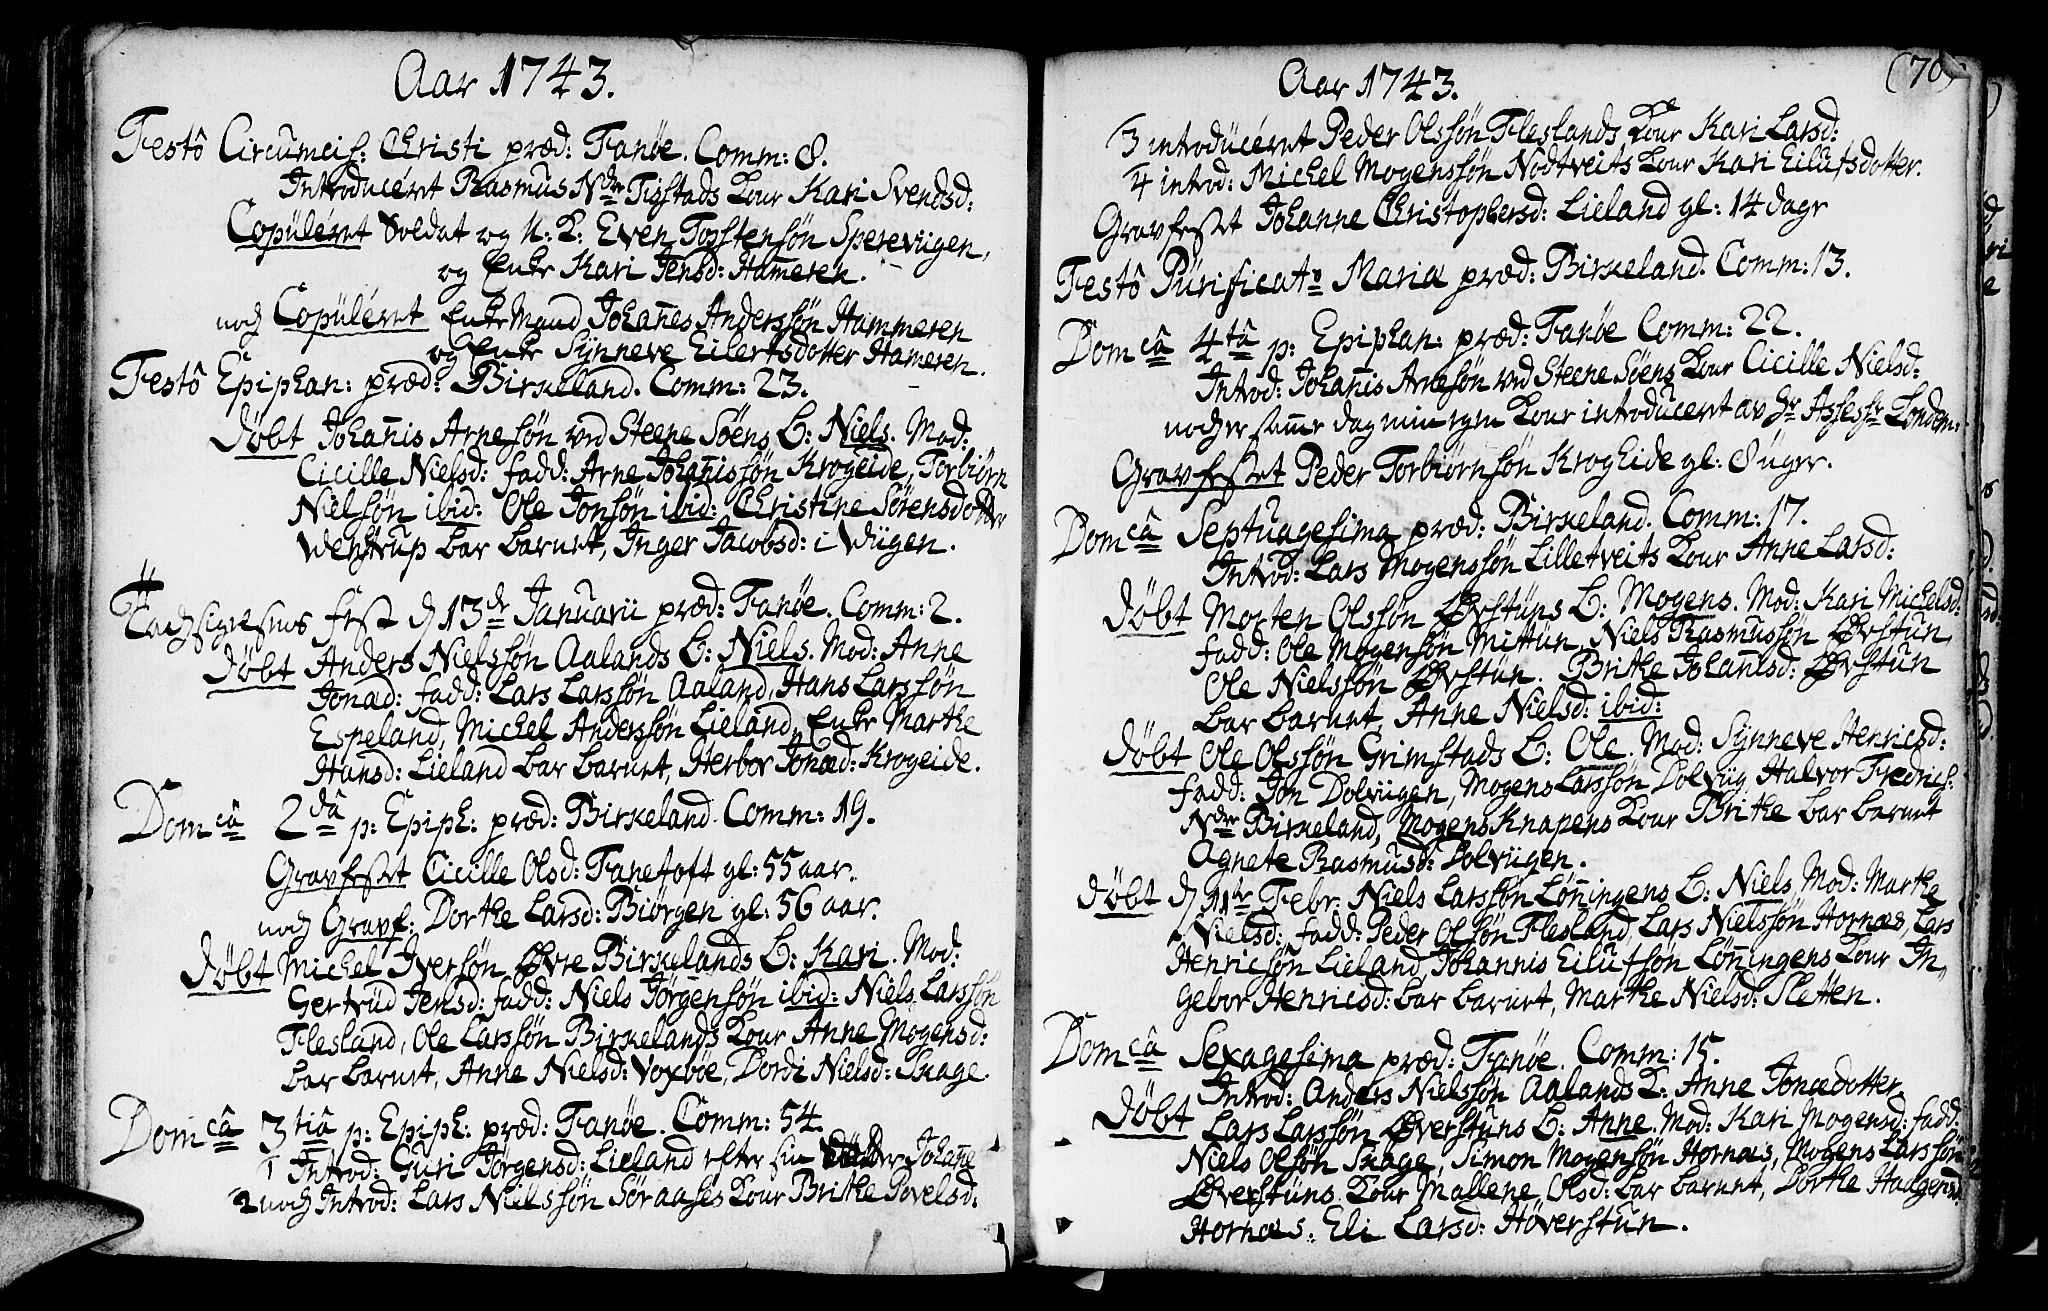 Aar 1743.
Festô Circumcis: Christi præd: Fanøe. Comm: 8.
Introduceret Rasmus Ndr Tistads Kone Kari Svendsd:
Copuleret Soldat og U: K: Even Tostensøn Sperevügen,
og Enke Kari Jensd: Hameren.
noch Copuleret EnkeMand Johanes Anderssøn Hammeren
og Enke Synneve Eilertsdotter Hameren.
Festô Epiphan: præd: Birkeland. Comm: 23.
Døbt Johanis Arnesøn ved Steene Søens B: Niels. Mod:
Cicille Nielsd: fadd: Arne Johanissøn Krogeide, Torbiørn
Nielsøn ibid: Ole Jonsøn ibid: Christine Sørensdotter
Wenstrup bar barnet, Inger Jacobsd: i Wügen.
Tachsigelses fest d 13de Januarii præd: Fanøe. Comm: 2.
Døbt Anders Nielssøn Aalands B: Niels. Mod: Anne
Jonæd: fadd: Lars Larssøn Aaland, Hans Larssøn
Espeland, Michel Anderssøn Lieland, Enke Marthe
Hansd: Lieland bar barnet, Herbor Jonæd: Krogeide.
Domcâ 2dâ p: Epiph: præd: Birkeland. Comm: 19.
Gravfestet Cicille Olsd: Fanetoft gl: 55 aar.
noch Gravf: Dorthe Larsd: Biørgen gl: 56 aar.
Døbt Michel Iversøn Øvre Birkelands B: Kari. Mod:
Gertrud Jensd: fadd: Niels Jørgensøn ibid: Niels Larssøn
Flesland, Ole Larssøn Birkelands Kone Anne Mogensd:
bar barnet, Anne Nielsd: Voxbøe, Dordi Nielsd: Skage.
Domcâ 3tiâ p: Epiph: præd: Fanøe. Comm: 54.
1 Introd: Guri Jørgensd: Lieland efter sin Johane
2 noch Introd: Lars Nielssøn Søraases Kone Brithe Povelsd:
(70)
Aar 1743.
3 introduceret Peder Olssøn Fleslands Kone Kari Larsd:
4 introd: Michel Mogenssøn Nødtveits Kone Kari Eilufsdotter.
Gravfestet Johanne Christophersd: Lieland gl: 14 dage
Festô Purificat: Mariæ præd: Birkeland. Comm: 13.
Domcâ 4tâ p: Epiphan: præd: Fanøe Comm: 22.
Introd: Johanis Arnesøn ved Steene Søens Kone Cicille Nielsd:
noch er same dag min egen Kone introduceret av Hr Assessr Londem:
Gravfestet Peder Torbiørnsøn Krogheide gl: 8 uger.
Domcâ Septuagesima præd: Birkeland. Comm: 17.
Introd: Lars Mogenssøn Lilletveits Kone Anne Larsd:
Døbt Morten Olssøn Øvstuns B: Mogens. Mod: Kari Michelsd:
fadd: Ole Mogensøn Mittun, Niels Rasmussøn Øvstun,
Ole Nielssøn Øvstun. Brithe Johanisd: Øvstun
bar barnet, Anne Nielsd: ibid:
Døbt Ole Olssøn Grimstads B: Ole. Mod: Synneve Henricsd:
fadd: Jon Dolvügen, Mogens Larssøn Dolvüg, Halvor Fredrics:
Ndre Birkeland, Mogens Knapens Kone Brithe bar barnet
Agnete Rasmusd: Dolvügen.
Døbt d 11te Febr. Niels Larssøn Løningens B: Niels Mod: Marthe
Nielsd: fadd: Peder Olssøn Flesland, Lars Nielssøn Hornæs, Lars
Henricsøn Lieland, Johannis Eilufsøn Løningens Kone In-
gebor Henricsd: bar barnet, Marthe Nielsd: Sletten.
Domcâ Sexagesima præd: Fanøe. Comm: 15.
Introd: Anders Nielssøn Aalands K: Anne Jonædotter
Døbt Lars Larssøn Øverstuns B: Anne. Mod: Kari Mogensd: fadd:
Niels Olsøn Skage, Simon Mogensøn Hornæs, Mogens Larssøn
Øverstuns Kone Mallene Olsd: bar barnet, Dorthe Haagensd:
Hornæs: Eli Larsd: Høverstun.